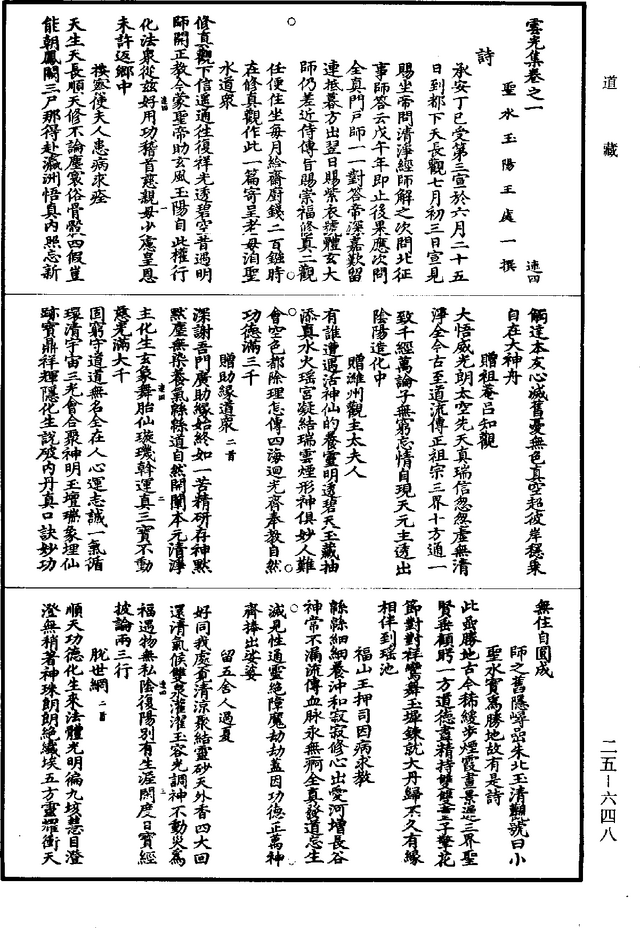 道藏
雲光集卷之一
聖水玉陽王處一撰　速四
詩
承安丁巳受第三宣於六月二十五
日到都下天長觀七月初三日宣見
賜坐帝問清淨經師解之次問北征
事師答云戊午年即止後果應次問
全真門戶師一一對答帝深嘉歎留
連抵暮方出翌日賜紫衣號體玄大
師仍差近侍傳旨賜崇福修真二觀
任便住坐每月給齋廚錢二百鏹時
在修真觀作此一篇寄呈老母洎聖
水道眾
修真觀下信遥通往復祥光透碧空昔遇明
師開正教今蒙聖帝助玄風玉陽自此權行
化法眾從兹好用功稽首慈親毋少慮皇恩
未許返鄉中
按察使夫人患病求痊
天生天長順天修不論塵寰俗骨髏四假豈
能朝鳳闕三尸那得赴瀛洲悟真內照忘新
觸達本友心滅舊憂無色真空超彼岸穩乘
自在大神舟
贈祖菴呂知觀
大悟威光朗太空先天真瑞信怱怱虛無清
淨全今古至道流傳正祖宗三界十方通一
致千經萬論子無窮忘情自現天元主透出
陰陽造化中
贈濰州觀主太夫人
有誰遭遇活神仙的養靈明透碧天玉藏抽
添真水火瑶宮凝結瑞雲煙形神俱妙人難
會空色都除理怎傳四海迴光齊奉教自然
功德滿三千
贈助緣道眾二首
深謝吾門廣助緣始終如一苦精研存神默
默塵無染養氣緜緜道自然開闡本元清淨
主化生玄象舞胎仙璇璣斡運真三寶不動
慈光滿大千
固窮守道道無名全在人心運志誠一氣循
環清宇宙三光會合聚神明玉壇瑞象埋仙
跡寶鼎祥輝隱化生説破內丹真口訣妙功
無住自圓成
師之舊隱㟭嵓朱北玉清觀號曰小
聖水實爲勝地故有是詩
此嵓勝地古今稀緩步煙霞晝景遲三界聖
賢垂顧盻一方道德晝精持雙雙童子擎花
節對對祥鸞舞玉墀鍊就大丹歸不久有緣
相伴到瑶池
福山王押司因病求教
緜緜細細養沖和寂寂修心出愛河增長谷
神常不漏流傳血脉永無痾全真發道忘生
滅見性通靈絶障魔劫劫蓋因功德正萬神
齊捧出娑婆
留五舍人過夏
好同我處賓清凉聚結靈砂天外香四大回
還清氣候雙泉灌溉玉容光調神不動災爲
福遇物無私陰復陽別有生涯閑度日寶經
披論兩三行
脱世網二首
順天功德化生來法體光明徧九垓慧目澄
澄無稍著神珠朗朗絶纖埃五方靈耀衝天
二五－六四八